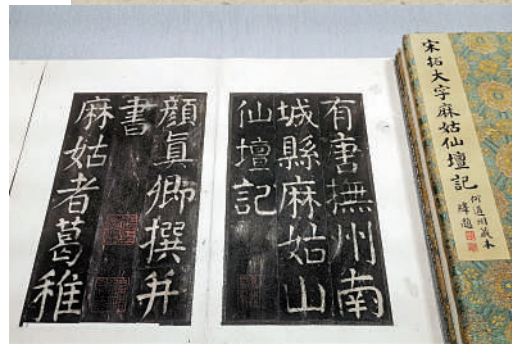 有唐撫州南
城縣麻姑山
仙壇記
顏眞卿撰并
書
麻姑者葛稚
宋拓大字麻姑仙壇記
何道州藏本